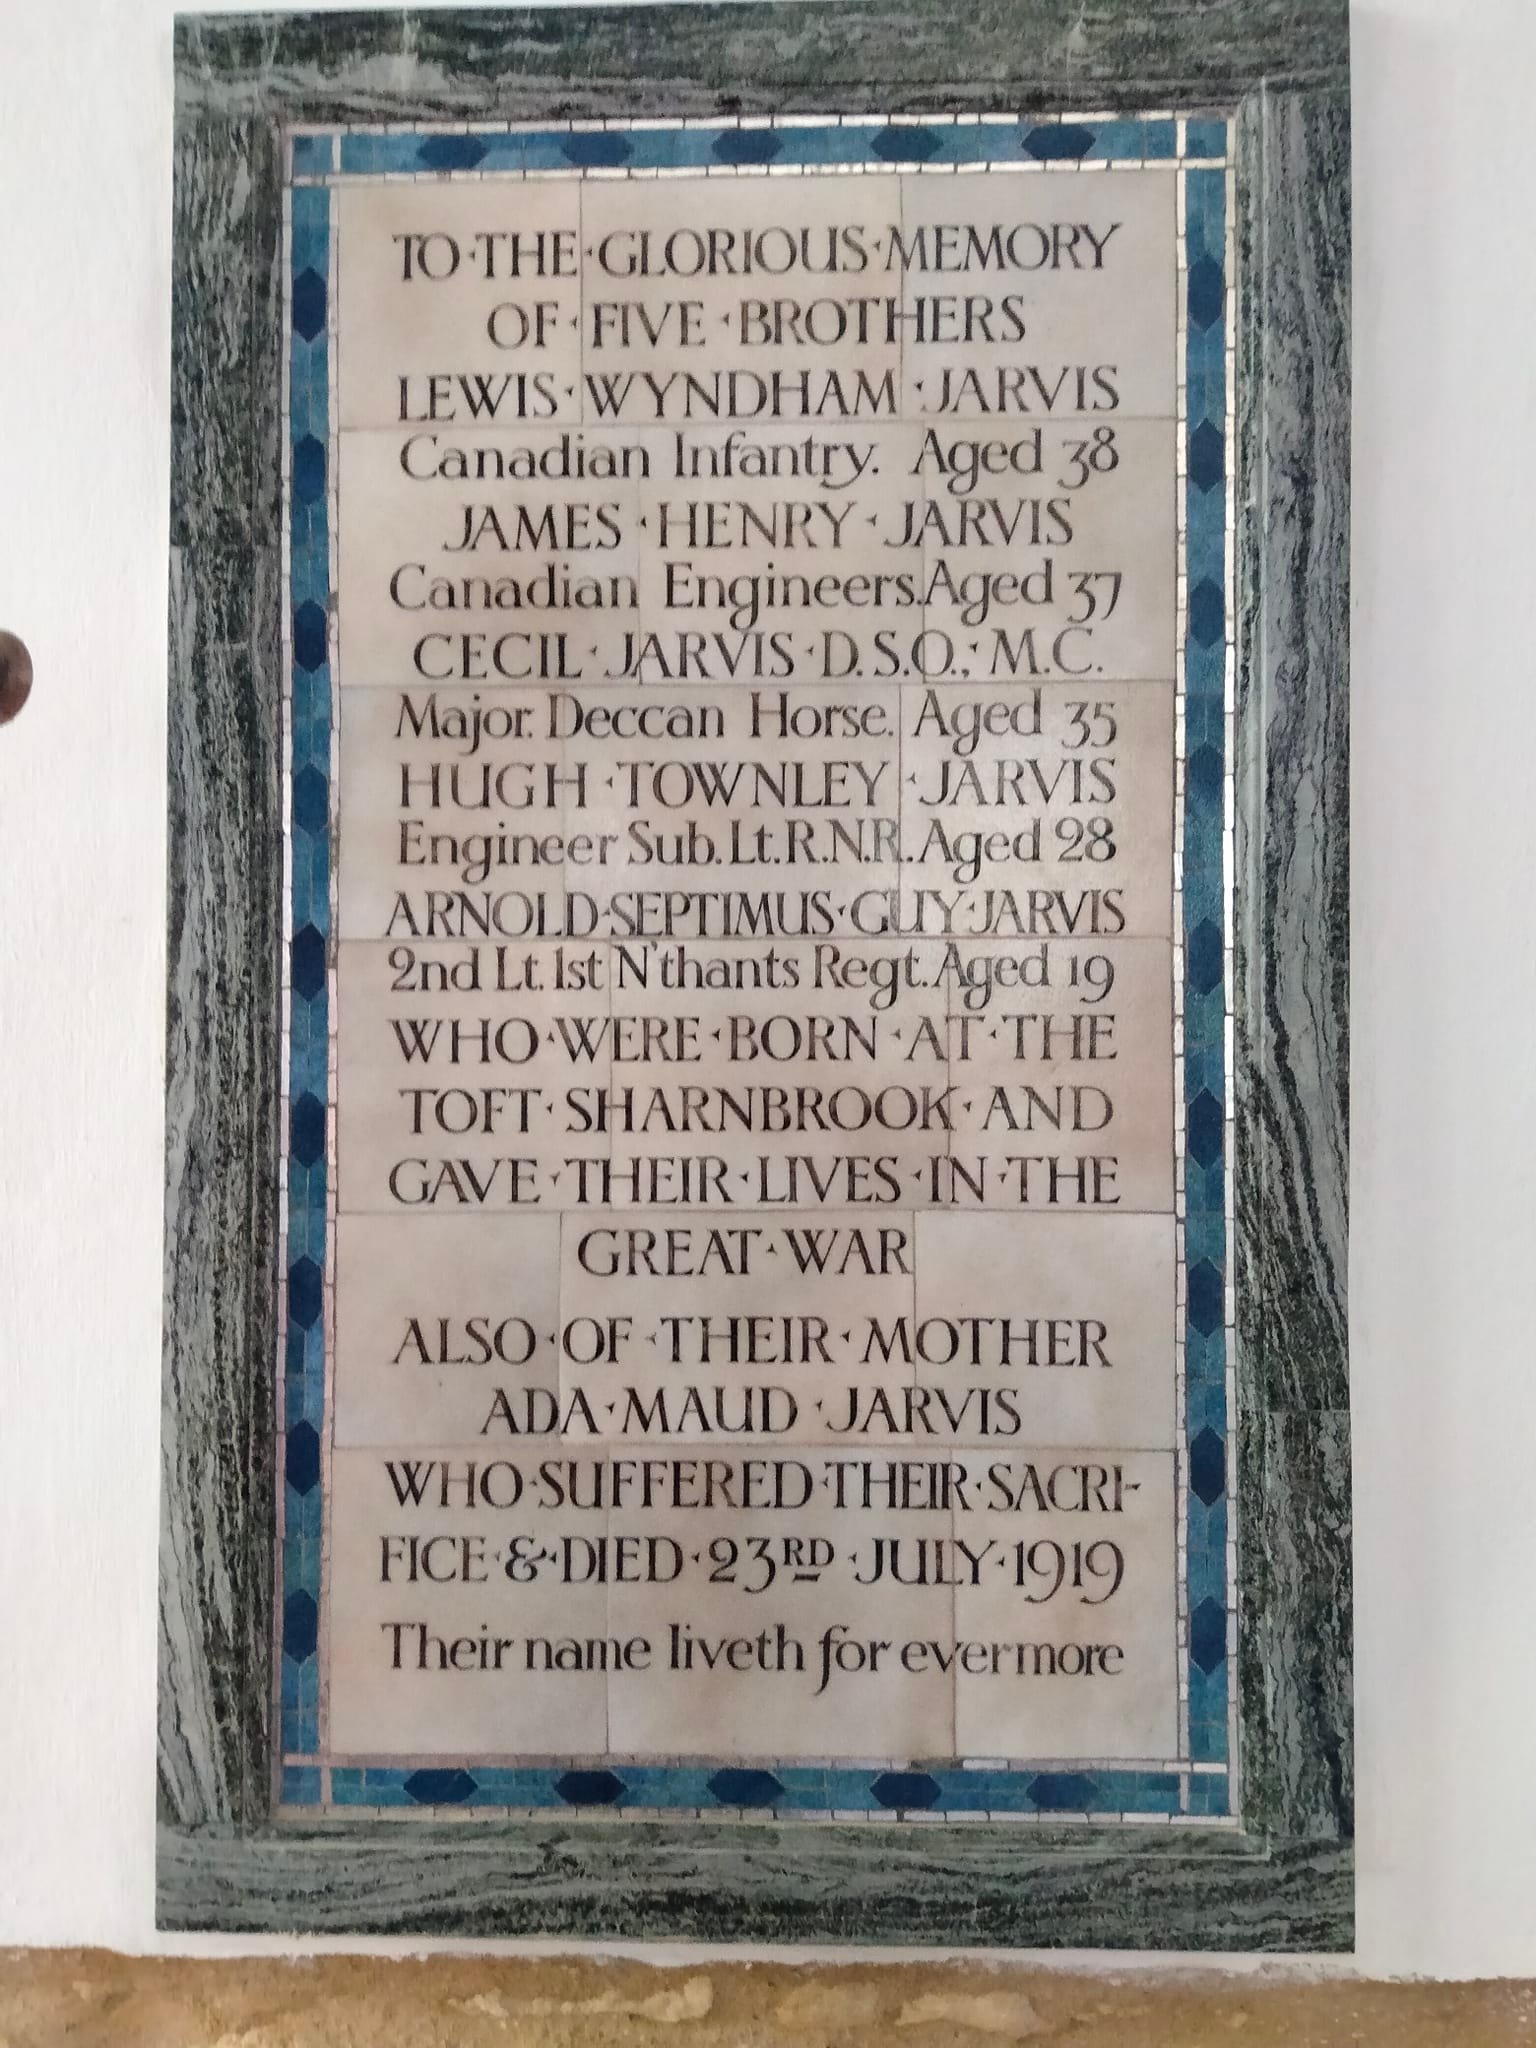 TO·THE·GLORIOUS·MEMORY
OF·FIVE·BROTHERS
LEWIS·WYNDHAM·JARVIS
Canadian Infantry. Aged 38
JAMES·HENRY·JARVIS
Canadian Engineers. Aged 37
CECIL·JARVIS·D.S.O.,·M.C.
Major. Deccan Horse. Aged 35
HUGH·TOWNLEY·JARVIS
Engineer Sub. Lt. R.N.R. Aged 28
ARNOLD·SEPTIMUS·GUY·JARVIS
2nd Lt. 1st N'thants Regt. Aged 19
WHO·WERE·BORN·AT·THE
TOFT·SHARNBROOK·AND
GAVE·THEIR·LIVES·IN·THE
GREAT·WAR
ALSO·OF·THEIR·MOTHER
ADA·MAUD·JARVIS
WHO·SUFFERED·THEIR·SACRI-
FICE·&·DIED·23RD·JULY·1919
Their name liveth for evermore